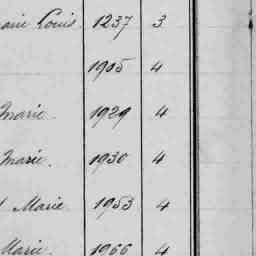 Louis. 1237 3
1905 4
Marie. 1929 4
Marie. 1930 4
Marie 1953 4
Marie. 1966 4